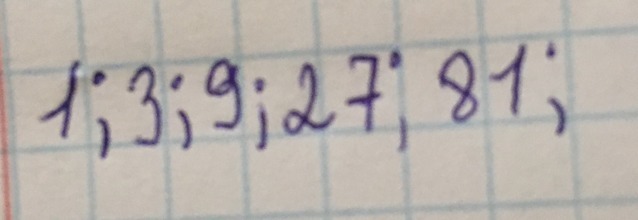 1; 3; 9; 27; 81;